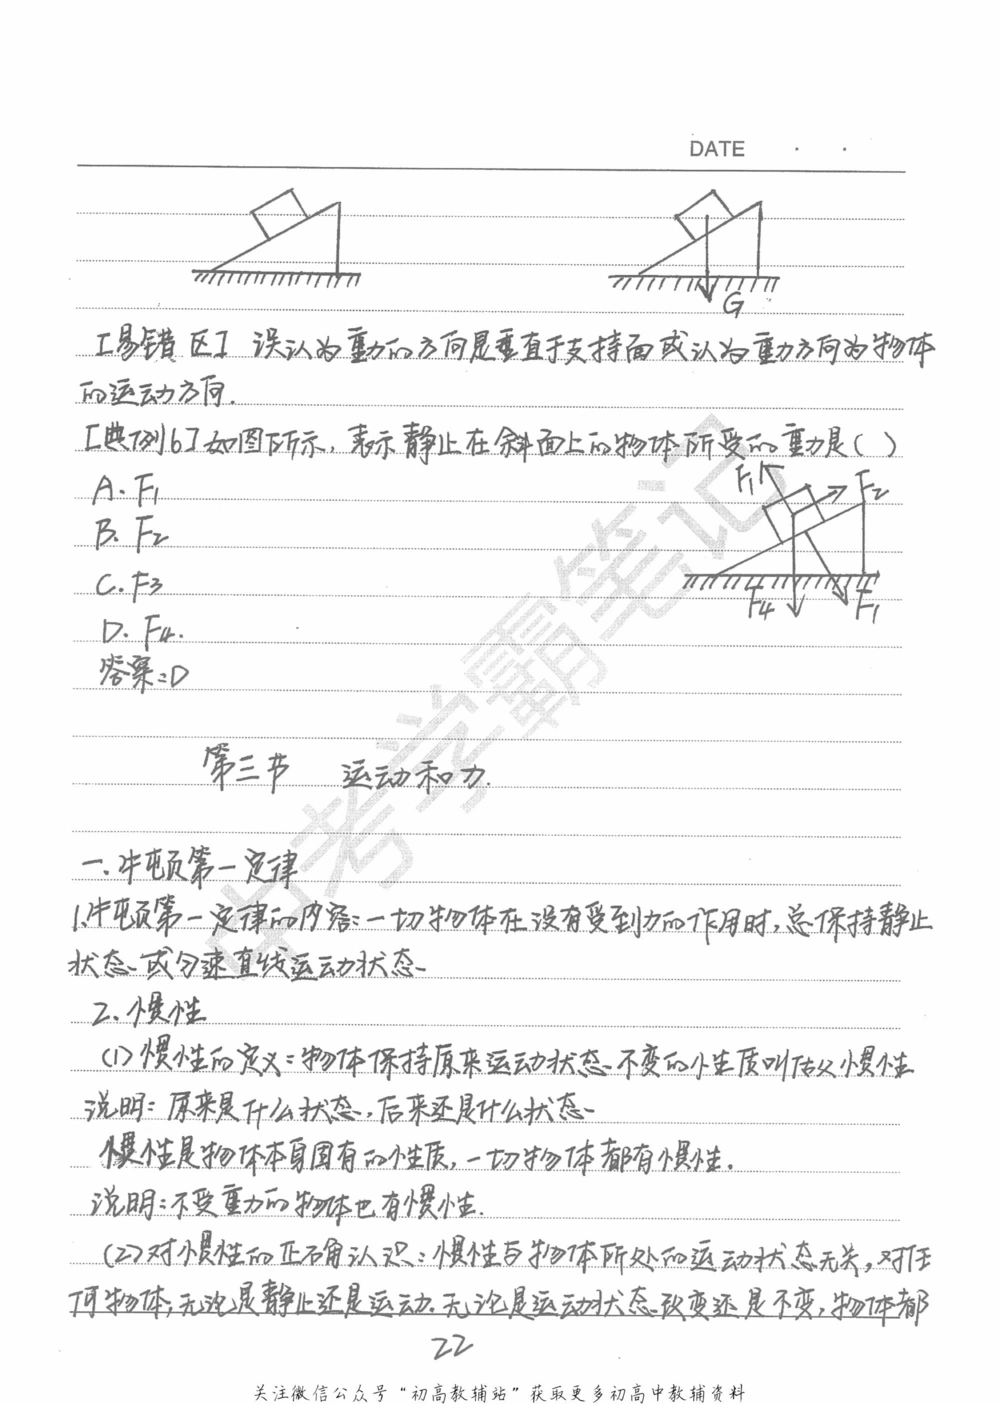 DATE
G
[易错区] 误认为重力的方向是垂直于支持面或认为重力方向为物体
的运动方向.
[典例6]如图所示,表示静止在斜面上的物体所受的重力是( )
A. F1
B. F2
C. F3
D. F4.
答案:D
F1
F2
F4
F1
第三节 运动和力.
一.牛顿第一定律
1.牛顿第一定律的内容:一切物体在没有受到力的作用时,总保持静止
状态或匀速直线运动状态.
2.惯性
(1)惯性的定义:物体保持原来运动状态不变的性质叫做惯性
说明:原来是什么状态,后来还是什么状态.
惯性是物体本身固有的性质,一切物体都有惯性.
说明:不受重力的物体也有惯性.
(2)对惯性的正确认识:惯性与物体所处的运动状态无关,对任
何物体,无论是静止还是运动.无论是运动状态改变还是不变,物体都
22
关注微信公众号“初高教辅站”获取更多初高中教辅资料
中考学霸笔记